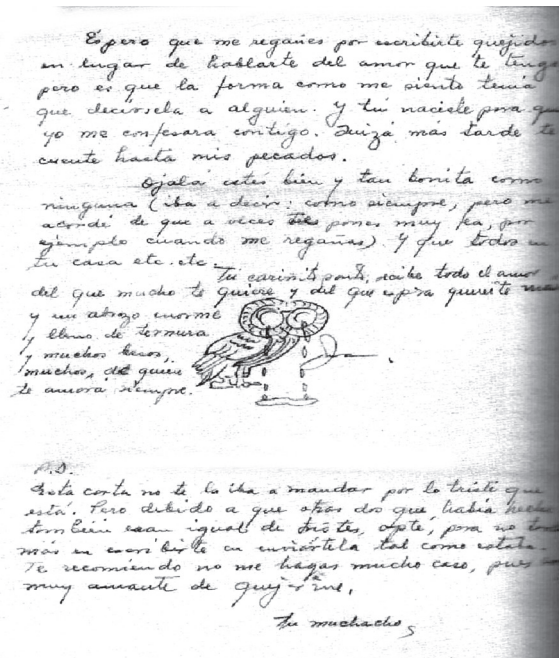 Espero que me regañes por escribirte quejidos
en lugar de hablarte del amor que te tengo
pero es que la forma como me siento tenía
que decírsela a alguien. Y tú naciste para que
yo me confesara contigo. Quizá más tarde te
cuente hasta mis pecados.
Ojalá estés bien y tan bonita como
ninguna (iba a decir: como siempre, pero me
acordé de que a veces te pones muy fea, por
ejemplo cuando me regañas). Y que todos en
tu casa etc. etc.
Tú cariñito santo, recibe todo el amor
del que mucho te quiere y del que espera quererte más
y un abrazo enorme
y lleno de ternura
y muchos besos,
muchos, de quien
te amará siempre.
P.D.
Esta carta no te la iba a mandar por lo triste que
está. Pero debido a que otras dos que había hecho
también eran igual de tristes, opté, para no
más en escribirte en enviártela tal como estaba.
Te recomiendo no me hagas mucho caso, pues
muy amante de quejarme.
Tu muchacho,